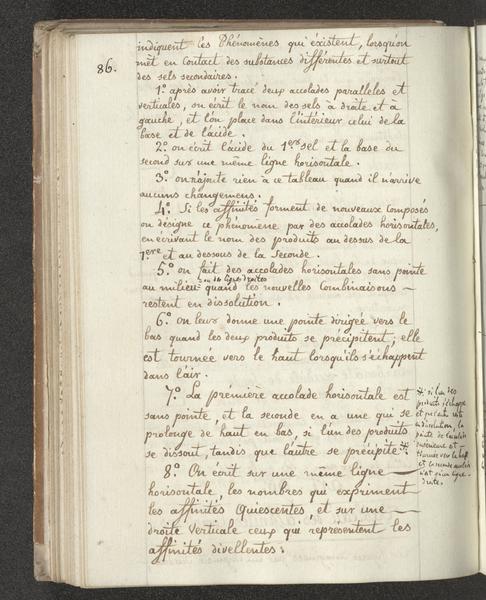 86.
indiquent les Phénomènes qui éxistent, lorsqu'on
met en Contact des substances différentes et surtout
des sels secondaires.
1º. après avoir tracé deux accolades paralleles et
verticales, on écrit le nom des sels à droite et à
gauche, et l'on place dans l'intérieur celui de la
base et de l'acide.
2º. on écrit l'acide du 1er sel et la base du
second sur une même ligne horisontale.
3º. on n'ajoute rien à ce tableau quand il n'arrive
aucuns changemens.
4º. Si les affinités forment de nouveaux Composés
on désigne ce phénomène par des accolades horisontales,
en écrivant le nom des produits au dessus de la
1ere et au dessous de la Seconde.
5º. on fait des accolades horisontales sans pointe
ou des lignes droites
au milieu quand les nouvelles Combinaisons
restent en dissolution.
6º. on leur donne une pointe dirigée vers le
bas quand les deux produits se précipitent; elle
est tournée vers le haut lorsqu'ils s'échappent
dans l'air.
7º. La première accolade horisontale est
sans pointe, et la seconde en a une qui se
prolonge de haut en bas, si l'un des produits
se dissout, tandis que l'autre se précipite. *
* si l'un des
produits s'échappe
et reste
en dissolution, la
pointe de
est
tournée vers le haut
et la seconde
n'est qu'une ligne
droite.
8º. On écrit sur une même ligne
horisontale, les nombres qui expriment
les affinités Quiescentes, et sur une
droite verticale ceux qui représentent les
affinités divellentes: